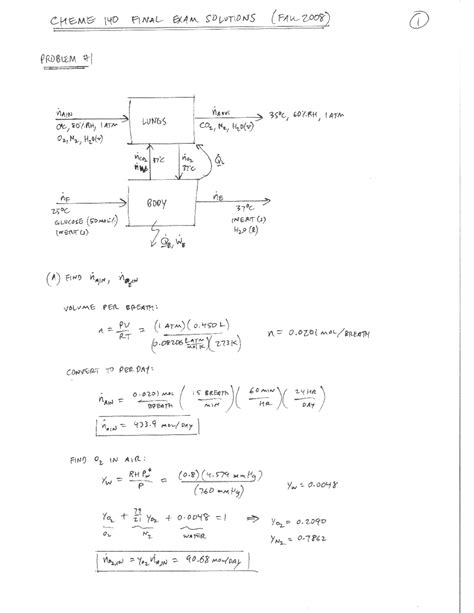 CHEME 140 FINAL EXAM SOLUTIONS (FALL 2008)
1
PROBLEM #1
ṅAIN
0°C, 80% RH, 1 ATM
O2, N2, H2O(v)
LUNGS
CO2, N2, H2O(v)
35°C, 60% RH, 1 ATM
ṅCO2
37°C
ṅO2
37°C
Q̇L
ṅF
25°C
GLUCOSE (50 mol%)
INERT(s)
BODY
ṅE
37°C
INERT(s)
H2O(l)
Q̇B, ẆB
(A) FIND ṅAIN, ṅO2IN
VOLUME PER BREATH:
n = PV/RT = (1 ATM)(0.450 L) / (0.08206 L ATM/mol K)(273K) n = 0.0201 mol/BREATH
CONVERT TO PER DAY:
ṅAIN = 0.0201 mol/BREATH (15 BREATH/MIN)(60 MIN/HR)(24 HR/DAY)
ṅAIN = 433.9 mol/DAY
FIND O2 IN AIR:
yW = RH PW*/P = (0.8)(4.579 mm Hg)/(760 mm Hg) yW = 0.0048
yO2 + 79/21 yO2 + 0.0048 = 1 ⇒ yO2 = 0.2090
O2 N2 WATER yN2 = 0.7862
ṅO2,IN = yO2 ṅAIN = 90.68 mol/DAY